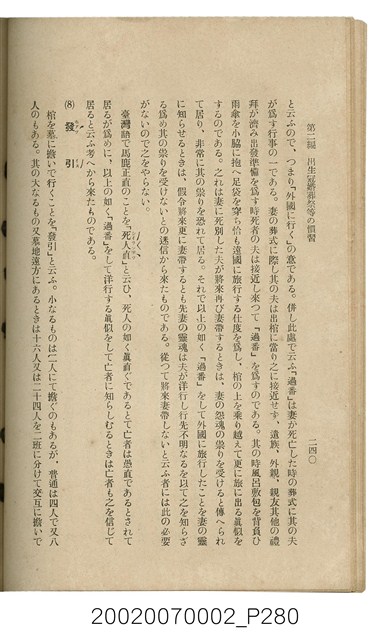 第二編　出生冠婚葬祭等の慣習
二四〇
と云ふので、つまり「外國に行く」の意である。併し此處で云ふ「過番」は妻が死亡した時の葬式に其の夫
が爲す行事の一である。妻の葬式に際し其の夫は出棺に當り之に接近せず、遺族、外親、親友其他の禮
拜が濟み出發準備を爲す時死者の夫は接近し來つて「過番」を爲すのである。其の時風呂敷包を背負ひ
雨傘を小脇に抱へ足袋を穿ち恰も遠國に旅行する仕度を爲し、棺の上を乘り越えて更に旅に出る眞似を
するのである。之れは妻に死別した夫が將來再び妻帶するときは、妻の怨魂の祟りを受けると傳へられ
て居り、非常に其の祟りを恐れて居る。それで以上の如く「過番」をして外國に旅行したことを妻の靈
に知らせるときは、假令將來更に妻帶するとも先妻の靈魂は夫が洋行し行先不明なるを以て之を知らざ
る爲め其の祟りを受けないとの迷信から來たものである。從つて將來妻帶しないと云ふ者には此の必要
がないので之をやらない。
臺灣語で馬鹿正直のことを「死人直」と云ひ、死人の如く眞直ぐであるとて亡者は愚直であるとされて
居るが爲めに、以上の如く「過番」をして洋行する眞似をして亡者に知らしむるときは亡者も之を信じて
居ると云ふ考へから來たものである。
(8) 發引
棺を墓に擔いで行くことを「發引」と云ふ。小なるものは二人にて擔ぐのもあるが、普通は四人で又八
人のもある。其の大なるもの又墓地遠方にあるときは十六人又は二十四人を二班に分けて交互に擔いで
20020070002_P280